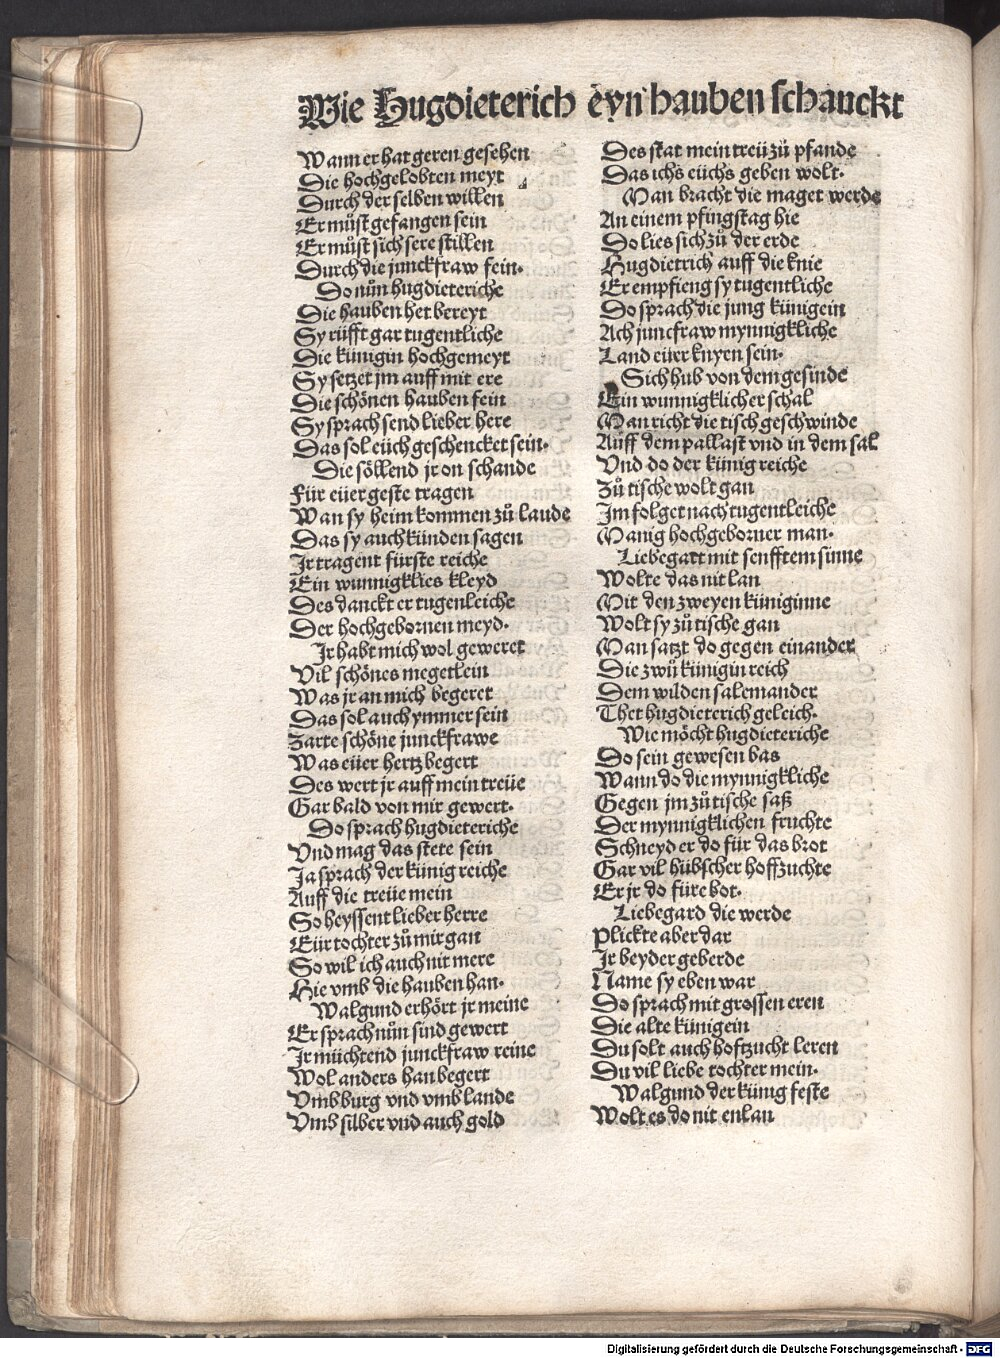 Wie Hugdieterich eyn hauben schanckt
Wann er hat geren gesehen
Die hochgelobten meyt
Durch der selben willen
Er můst gefangen sein
Er můst sich sere stillen
Durch die junckfraw fein.
Do nůn hugdieteriche
Die hauben het bereyt
Sy rüfft gar tugentliche
Die künigin hochgemeyt
Sy setzet jm auff mit ere
Die schönen hauben fein
Sy sprach send lieber here
Das sol eüch geschencket sein.
Die söllend jr on schande
Für eüer geste tragen
Wan sy heim kommen zů lande
Das sy auch künden sagen
Jr tragent fürste reiche
Ein wunnigklies kleyd
Des danckt er tugenleiche
Der hochgebornen meyd.
Jr habt mich wol geweret
Vil schönes megetlein
Was jr an mich begeret
Das sol auch ymmer sein
Zarte schöne junckfrawe
Was eüer hertz begert
Des wert jr auff mein treüe
Gar bald von mir gewert.
Do sprach hugdieteriche
Vnd mag das stete sein
Ja sprach der künig reiche
Auff die treüe mein
So heyssent lieber herre
Eür tochter zů mir gan
So wil ich auch nit mere
Hie vmb die hauben han.
Walgund erhört jr meine
Er sprach nůn sind gewert
Jr müchtend junckfraw reine
Wol anders han begert
Vmb burg vnd vmb lande
Vmb silber vnd auch gold
Des stat mein treü zů pfande
Das ichs eüchs geben wolt.
Man bracht die maget werde
An einem pfingstag hie
Do lies sich zů der erde
Hugdietrich auff die knie
Er empfieng sy tugentliche
Do sprach die jung künigein
Ach juncfraw mynnigkliche
Land eüer knyen sein.
Sich hub von dem gesinde
Ein wunnigklicher schal
Man richt die tisch geschwinde
Auff dem pallast vnd in dem sal
Vnd do der künig reiche
Zů tische wolt gan
Jm folget nach tugentleiche
Manig hochgeborner man.
Liebegart mit senfftem sinne
Wolte das nit lan
Mit den zweyen küniginne
Wolt sy zů tische gan
Man satzt do gegen einander
Die zwů künigin reich
Dem wilden salemander
Thet hugdieterich geleich.
Wie möcht hugdieteriche
Do sein gewesen bas
Wann do die mynnigkliche
Gegen jm zů tische saß
Der mynnigklichen fruchte
Schneyd er do für das brot
Gar vil hübscher hoffzuchte
Er jr do füre bot.
Liebegard die werde
Plickte aber dar
Jr beyder geberde
Name sy eben war
Do sprach mit grossen eren
Die alte künigein
Du solt auch hoftzucht leren
Du vil liebe tochter mein.
Walgund der künig feste
Wolt es do nit enlan
Digitalisierung gefördert durch die Deutsche Forschungsgemeinschaft - DFG